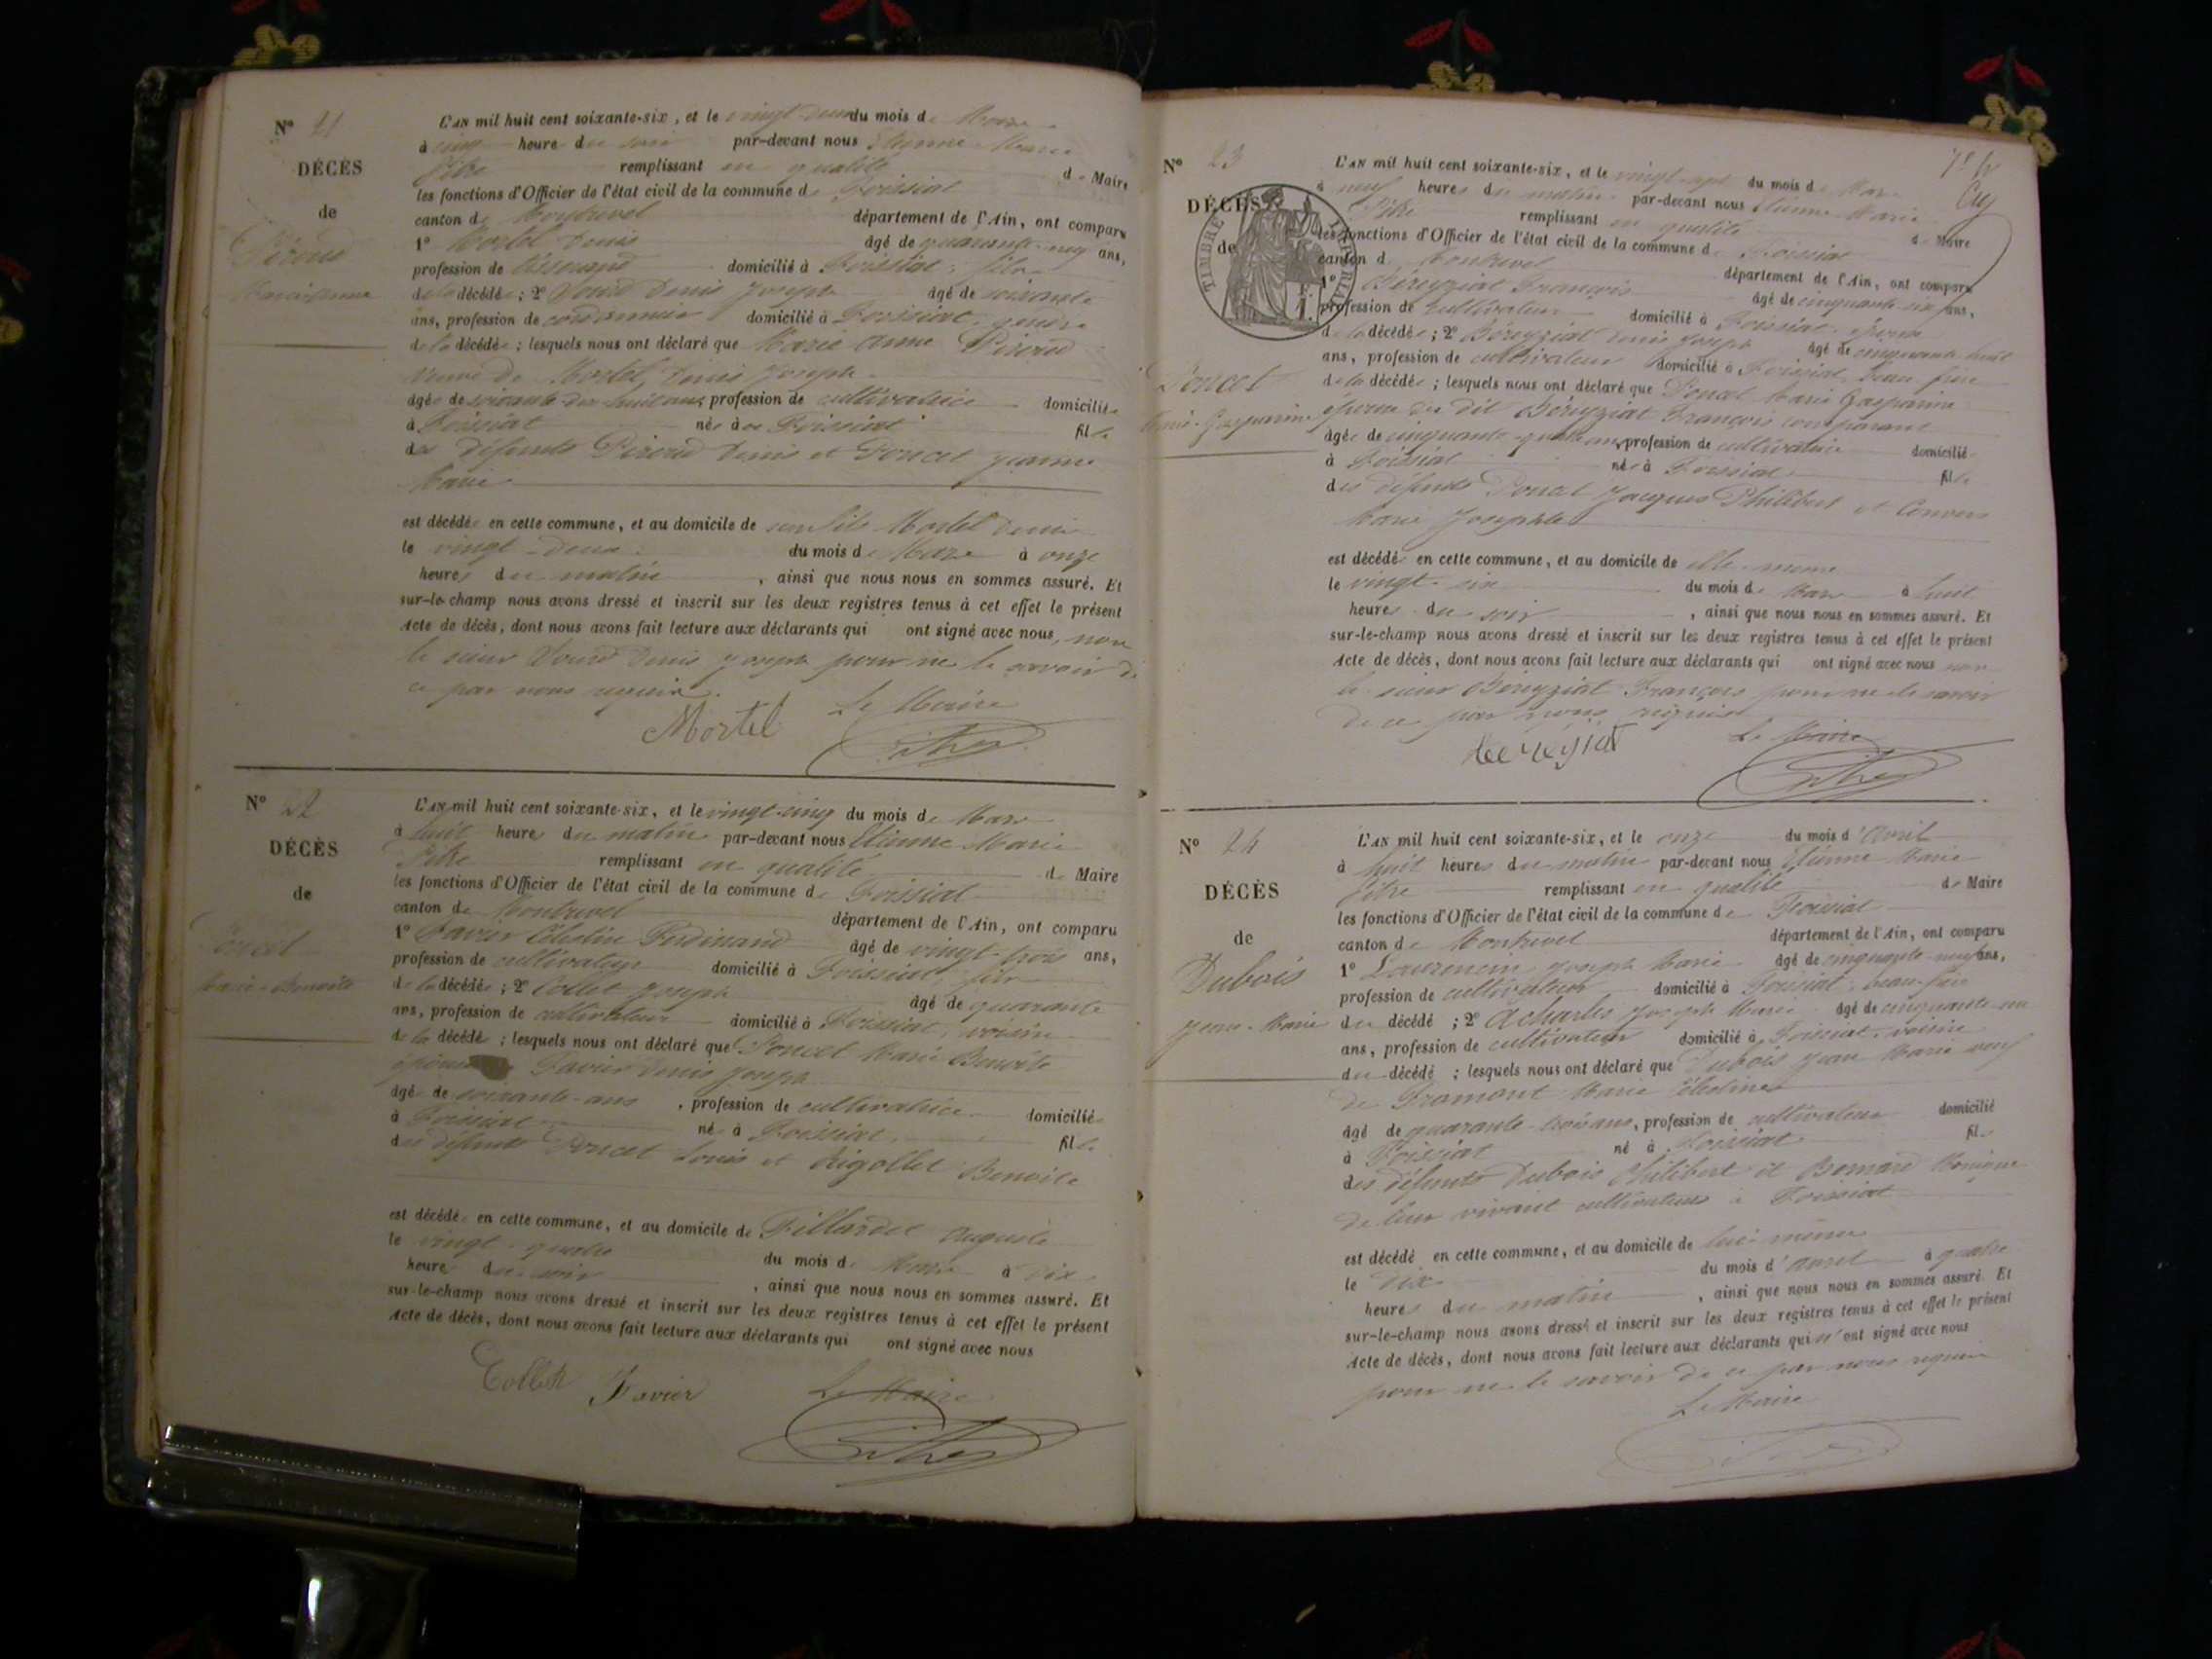 N° 21
DÉCÈS
de
Piroud
Marie Anne
L'AN mil huit cent soixante-six, et le vingt-deux du mois de Mars
à cinq heure du soir par-devant nous Etienne Marie
Pitre remplissant en qualité de Maire
les fonctions d'Officier de l'état civil de la commune de Foissiat
canton de Montrevel département de l'Ain, ont comparu
1° Mortel Denis âgé de quarante-neuf ans,
profession de tisserand domicilié à Foissiat, fils
de la décédée ; 2° Denis Joseph âgé de soixante
ans, profession de cordonnier domicilié à Foissiat, gendre
de la décédée ; lesquels nous ont déclaré que Marie Anne Piroud
veuve de Mortel, Denis Joseph
âgée de soixante-dix-huit ans, profession de cultivatrice domiciliée
à Foissiat née à Foissiat fille
des défunts Piroud Denis et Poncet Jeanne
Marie
est décédée en cette commune, et au domicile de son fils Mortel Denis
le vingt-deux du mois de Mars à onze
heures du matin, ainsi que nous nous en sommes assuré. Et
sur-le-champ nous avons dressé et inscrit sur les deux registres tenus à cet effet le présent
Acte de décès, dont nous avons fait lecture aux déclarants qui ont signé avec nous, non
le sieur Denis Joseph pour ne le savoir de
ce par nous requis.
Le Maire
Mortel Pitre
N° 22
DÉCÈS
de
Poncet
Marie-Benoite
L'AN mil huit cent soixante-six, et le vingt-cinq du mois de Mars
à huit heure du matin par-devant nous Etienne Marie
Pitre remplissant en qualité de Maire
les fonctions d'Officier de l'état civil de la commune de Foissiat
canton de Montrevel département de l'Ain, ont comparu
1° Favier Célestin Ferdinand âgé de vingt-trois ans,
profession de cultivateur domicilié à Foissiat, fils
de la décédée ; 2° Collet Joseph âgé de quarante
ans, profession de cultivateur domicilié à Foissiat, voisin
de la décédé ; lesquels nous ont déclaré que Poncet Marie Benoite
épouse Favier Denis Joseph
âgé de soixante-ans, profession de cultivatrice domiciliée
à Foissiat née à Foissiat fille
des défunts Poncet Louis et Rigollet Benoite
est décédé en cette commune, et au domicile de Fillardet Auguste
le vingt-quatre du mois de Mars à dix
heure du soir, ainsi que nous nous en sommes assuré. Et
sur-le-champ nous avons dressé et inscrit sur les deux registres tenus à cet effet le présent
Acte de décès, dont nous avons fait lecture aux déclarants qui ont signé avec nous
Collet Favier Le Maire
Pitre
N° 23
DÉCÈS
de
TIMBRE IMPERIAL
Poncet
Marie-Gasparine
L'AN mil huit cent soixante-six, et le vingt-sept du mois de Mars
à neuf heures du matin par-devant nous Etienne Marie
Pitre remplissant en qualité de Maire
les fonctions d'Officier de l'état civil de la commune de Foissiat
canton de Montrevel département de l'Ain, ont comparu
1° Béreyziat François âgé de cinquante-six ans,
profession de cultivateur domicilié à Foissiat, époux
de la décédée ; 2° Béreyziat Denis Joseph âgé de cinquante-huit
ans, profession de cultivateur domicilié à Foissiat, beau-frère
de la décédée ; lesquels nous ont déclaré que Poncet Marie Gasparine
épouse du dit Béreyziat François comparant
âgée de cinquante-quatre ans, profession de cultivatrice domicilié
à Foissiat née à Foissiat fille
des défunts Poncet Jacques Philibert et Convers
Marie Josephte
est décédée en cette commune, et au domicile de elle-même
le vingt-six du mois de Mars à huit
heures du soir, ainsi que nous nous en sommes assuré. Et
sur-le-champ nous avons dressé et inscrit sur les deux registres tenus à cet effet le présent
Acte de décès, dont nous avons fait lecture aux déclarants qui ont signé avec nous non
le sieur Béreyziat François pour ne le savoir
de ce par nous requis
Le Maire
Béreyziat Pitre
N° 24
DÉCÈS
de
Dubois
Jean-Marie
L'AN mil huit cent soixante-six, et le onze du mois d'Avril
à huit heures du matin par-devant nous Etienne Marie
Pitre remplissant en qualité de Maire
les fonctions d'Officier de l'état civil de la commune de Foissiat
canton de Montrevel département de l'Ain, ont comparu
1° Laurencin Joseph Marie âgé de cinquante-neuf ans,
profession de cultivateur domicilié à Foissiat, beau-frère
du décédé ; 2° Acharles Joseph Marie âgé de cinquante-un
ans, profession de cultivateur domicilié à Foissiat, voisin
du décédé ; lesquels nous ont déclaré que Dubois Jean Marie veuf
de Fromont Marie Célestine
âgé de quarante-trois ans, profession de cultivateur domicilié
à Foissiat né à Foissiat fils
des défunts Dubois Philibert et Bernard Monique
de leur vivant cultivateurs à Foissiat
est décédé en cette commune, et au domicile de lui-même
le dix du mois d'Avril à quatre
heures du matin, ainsi que nous nous en sommes assuré. Et
sur-le-champ nous avons dressé et inscrit sur les deux registres tenus à cet effet le présent
Acte de décès, dont nous avons fait lecture aux déclarants qui n'ont signé avec nous
pour ne le savoir de ce par nous requis
Le Maire
Pitre